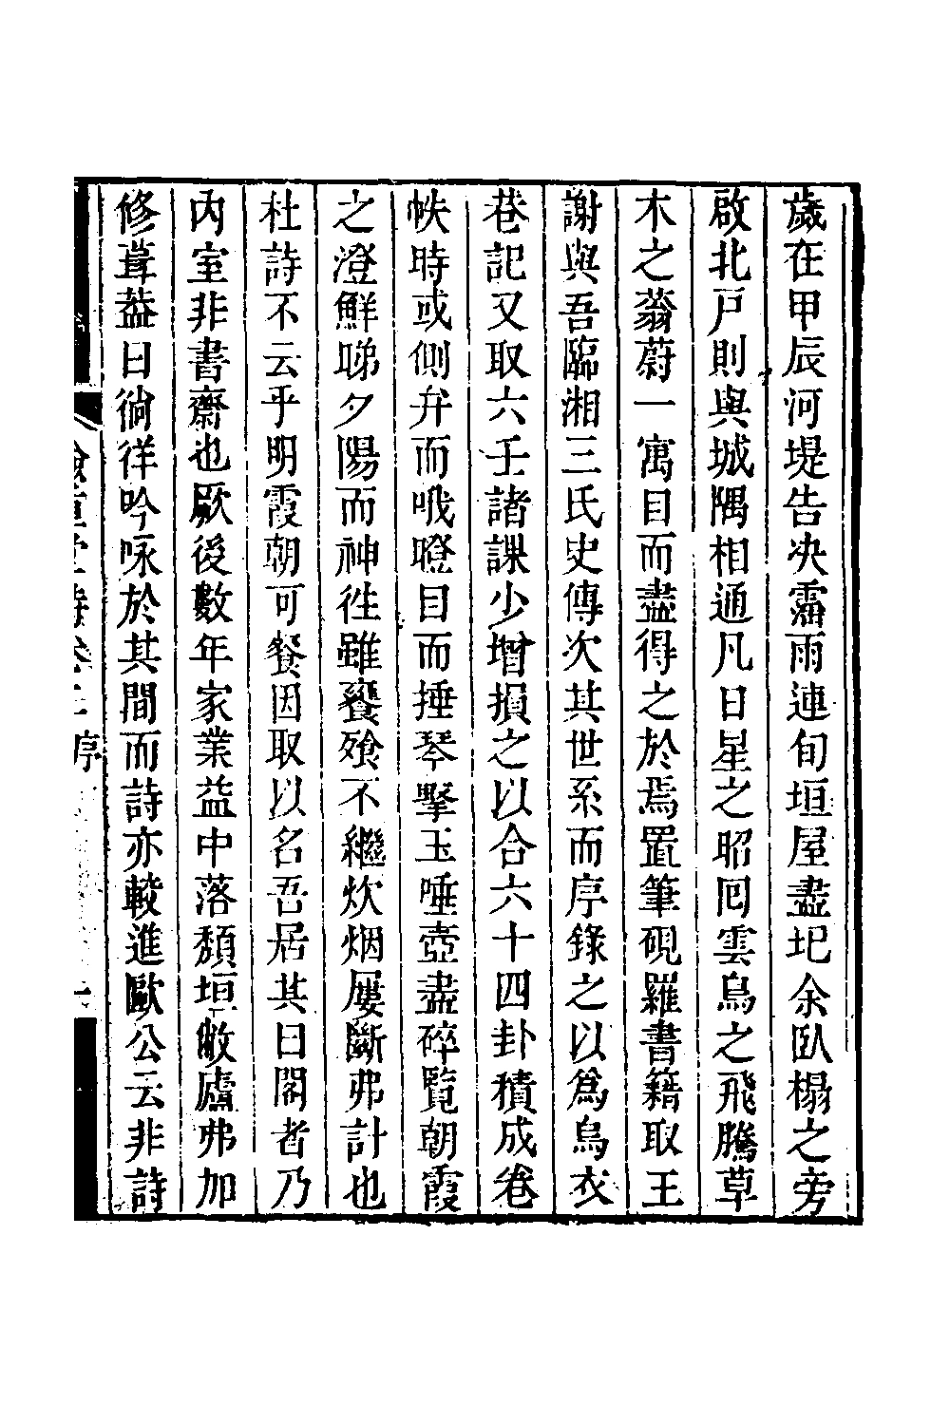 歲在甲辰河堤告決霪雨連旬垣屋盡圮余臥榻之旁
啟北戸則與城隅相通凡日星之昭囘雲鳥之飛騰草
木之蓊蔚一寓目而盡得之於焉置筆硯羅書籍取王
謝與吾臨湘三氏史傳次其世系而序錄之以爲烏衣
巷記又取六壬諸課少增損之以合六十四卦積成卷
帙時或側弁而哦瞪目而捶琴擊玉唾壺盡碎覽朝霞
之澄鮮睇夕陽而神徃雖饔飱不繼炊烟屢斷弗計也
杜詩不云乎明霞朝可餐因取以名吾居其曰閣者乃
内室非書齋也厥後數年家業益中落頽垣敝廬弗加
修葺葢日徜徉吟咏於其間而詩亦較進歐公云非詩